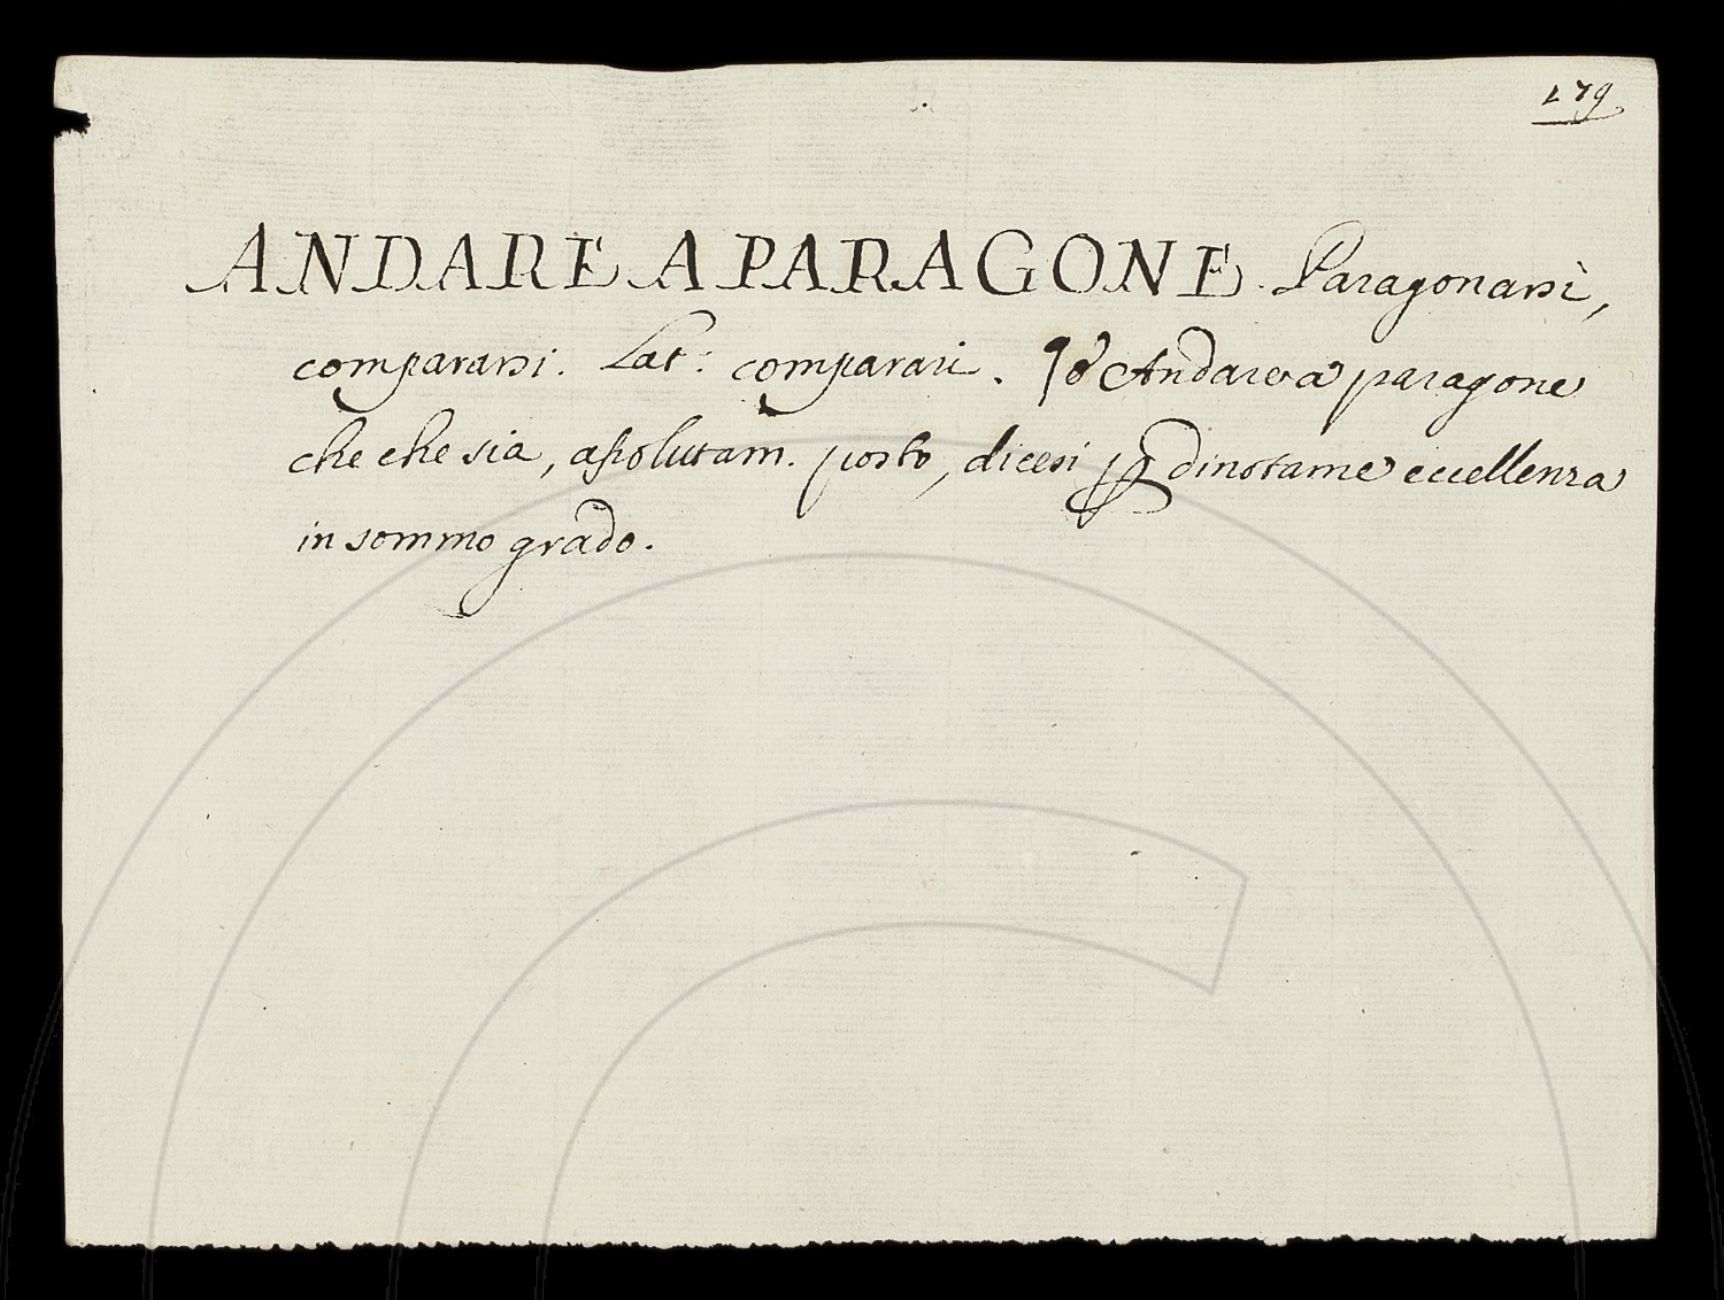 179
ANDARE A PARAGONE. Paragonarsi,
compararsi. Lat: comparari. Andare a paragone
che che sia, assolutam. posto, dicesi dinotarne eccellenza
in sommo grado.